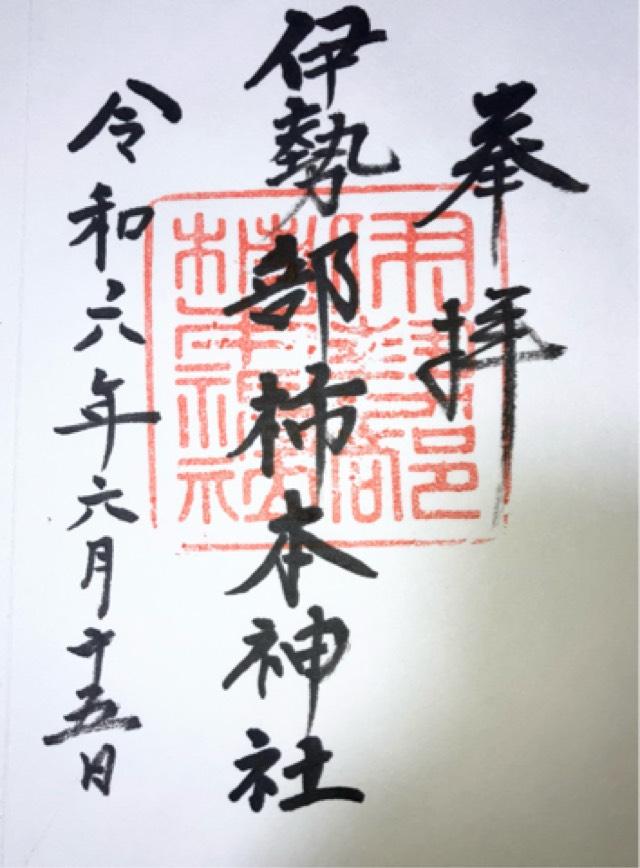 奉拝
伊勢部柿本神社
令和六年六月十五日